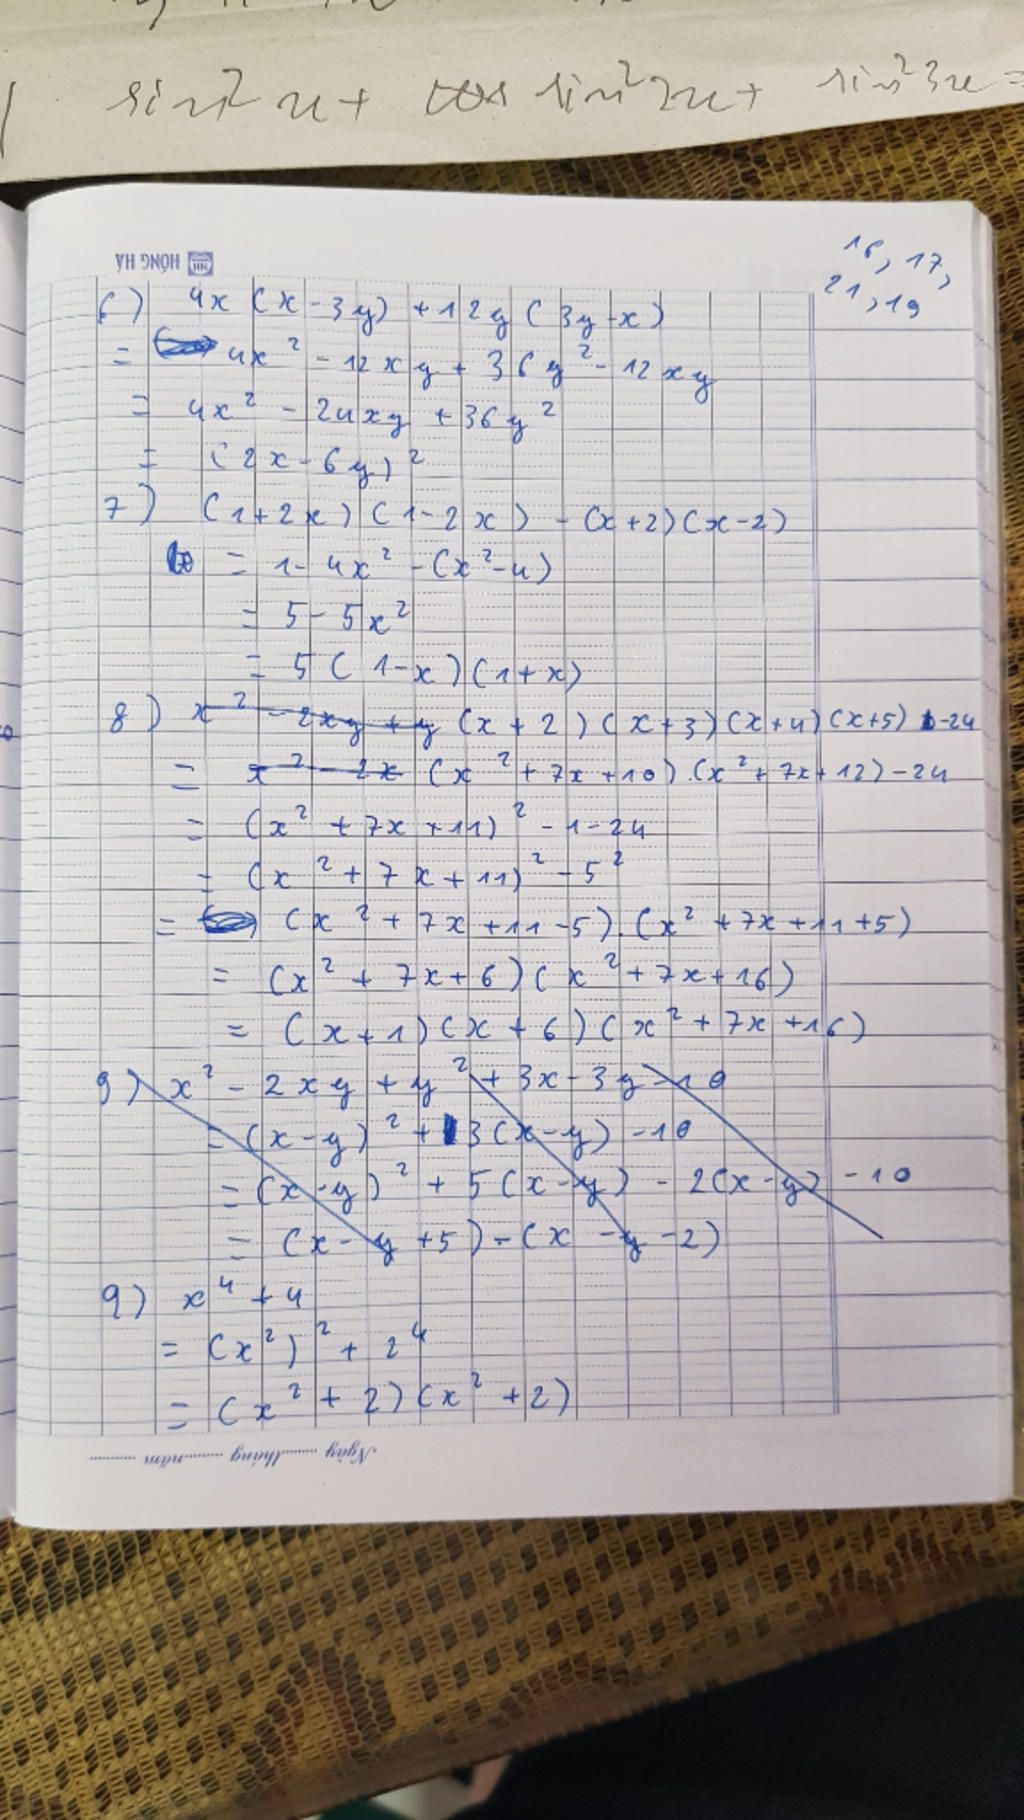 sin² x + cos sin² 2x + sin² 3x =
HỒNG HÀ
16, 17,
21, 19
6) 4x (x - 3y) + 12y (3y - x)
= 4x² - 12xy + 36y² - 12xy
= 4x² - 24xy + 36y²
= (2x - 6y)²
7) (1 + 2x) (1 - 2x) - (x + 2) (x - 2)
= 1 - 4x² - (x² - 4)
= 5 - 5x²
= 5 (1 - x) (1 + x)
8) x² - 2xy + y (x + 2) (x + 3) (x + 4) (x + 5) - 24
= x² - 2x (x² + 7x + 10) . (x² + 7x + 12) - 24
= (x² + 7x + 11)² - 1 - 24
= (x² + 7x + 11)² - 5²
= (x² + 7x + 11 - 5) . (x² + 7x + 11 + 5)
= (x² + 7x + 6) (x² + 7x + 16)
= (x + 1) (x + 6) (x² + 7x + 16)
9) x² - 2xy + y² + 3x - 3y - 10
= (x - y)² + 3 (x - y) - 10
= (x - y)² + 5 (x - y) - 2 (x - y) - 10
= (x - y + 5) - (x - y - 2)
9) x⁴ + 4
= (x²)² + 2⁴
= (x² + 2) (x² + 2)
Ngày ........ tháng ........ năm ........